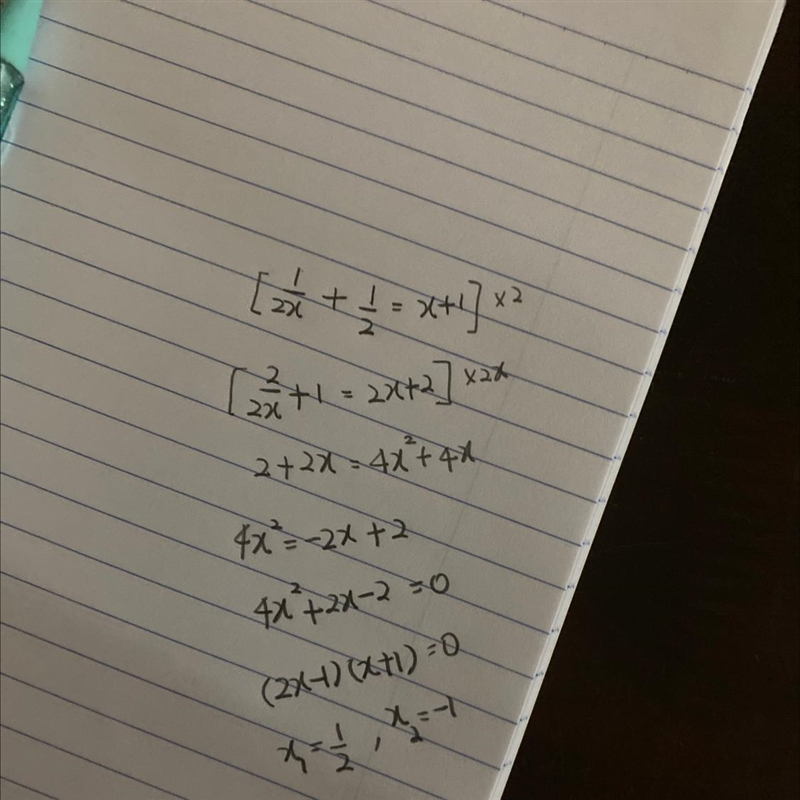 [1/2x + 1/2 = x+1] ×2
[2/2x + 1 = 2x+2] ×2x
2+2x = 4x²+4x
4x² = -2x+2
4x²+2x-2 = 0
(2x-1)(x+1) = 0
x₁ = 1/2, x₂ = -1